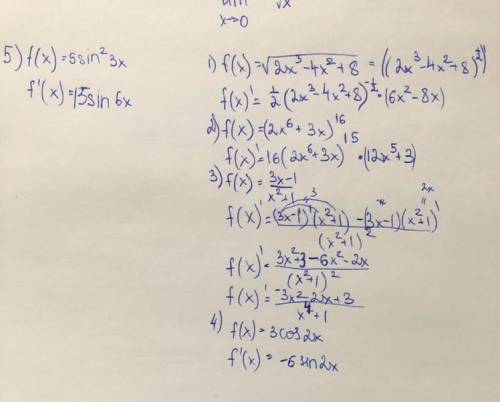 x→0
5) f(x)=5sin² 3x
f'(x)=15sin 6x
1) f(x)=√(2x³-4x²+8) = ((2x³-4x²+8)^½)'
f(x)'= ½ (2x³-4x²+8)^-½ · (6x²-8x)
2) f(x)=(2x⁶+3x)¹⁶
f(x)'=16(2x⁶+3x)¹⁵ · (12x⁵+3)
3) f(x)= (3x-1)/(x²+1)
f(x)'= ((3x-1)'(x²+1) - (3x-1)(x²+1)')/(x²+1)²
3
2x
f(x)'= (3x²+3-6x²-2x)/(x²+1)²
f(x)'= (-3x²-2x+3)/(x⁴+1)
4) f(x)=3cos2x
f'(x)= -6sin2x